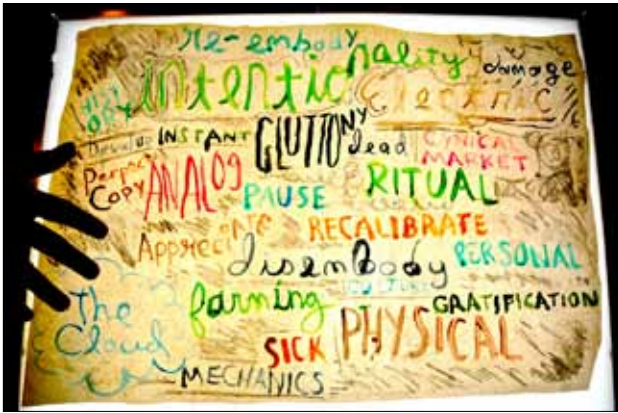 re-embody
intentionality
damage
Electric
INSTANT GLUTTONY dead CYNICAL MARKET
Perfect COPY ANALOG PAUSE RITUAL
Appreciate RECALIBRATE
disembody PERSONAL
CULTURE
The Cloud farming GRATIFICATION
SICK PHYSICAL
MECHANICS